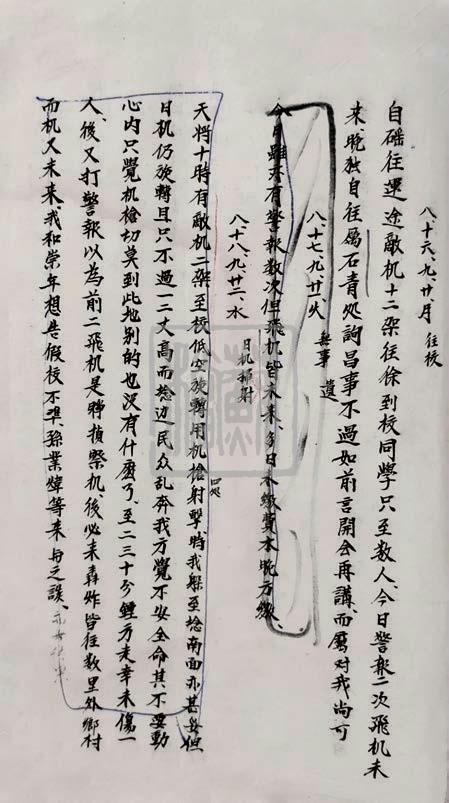 八、十六、九、廿、月 往校
自磁往運途敵机十二架往徐到校同學只至数人、今日警報二次飛机未
来、晚独自往屬石青処詢昌事不過如前言開会再講、而屬对我尚可
八、十七、九、廿一、火 無事 遺
今日雖亦有警報数次但飛机皆未来、多日未繳費本晩方繳
八、十八、九、廿二、水 日机掃射
天將十時有敵机二架至校低空旋轉用机槍四処射擊、時我躲至捻南面亦甚妥但
日机仍旋轉且只不過一二丈高而捻边民众乱奔我方覺不安全命其不要動
心内只覺机槍切莫到此地别的也没有什麽了、至二三十分鐘方走幸未傷一
人、後又打警報以為前二飛机是弹偵察机、後必来轟炸皆往数里外鄉村
而机又未来、我和崇年想告假校不準、孫業煒等来与之談、